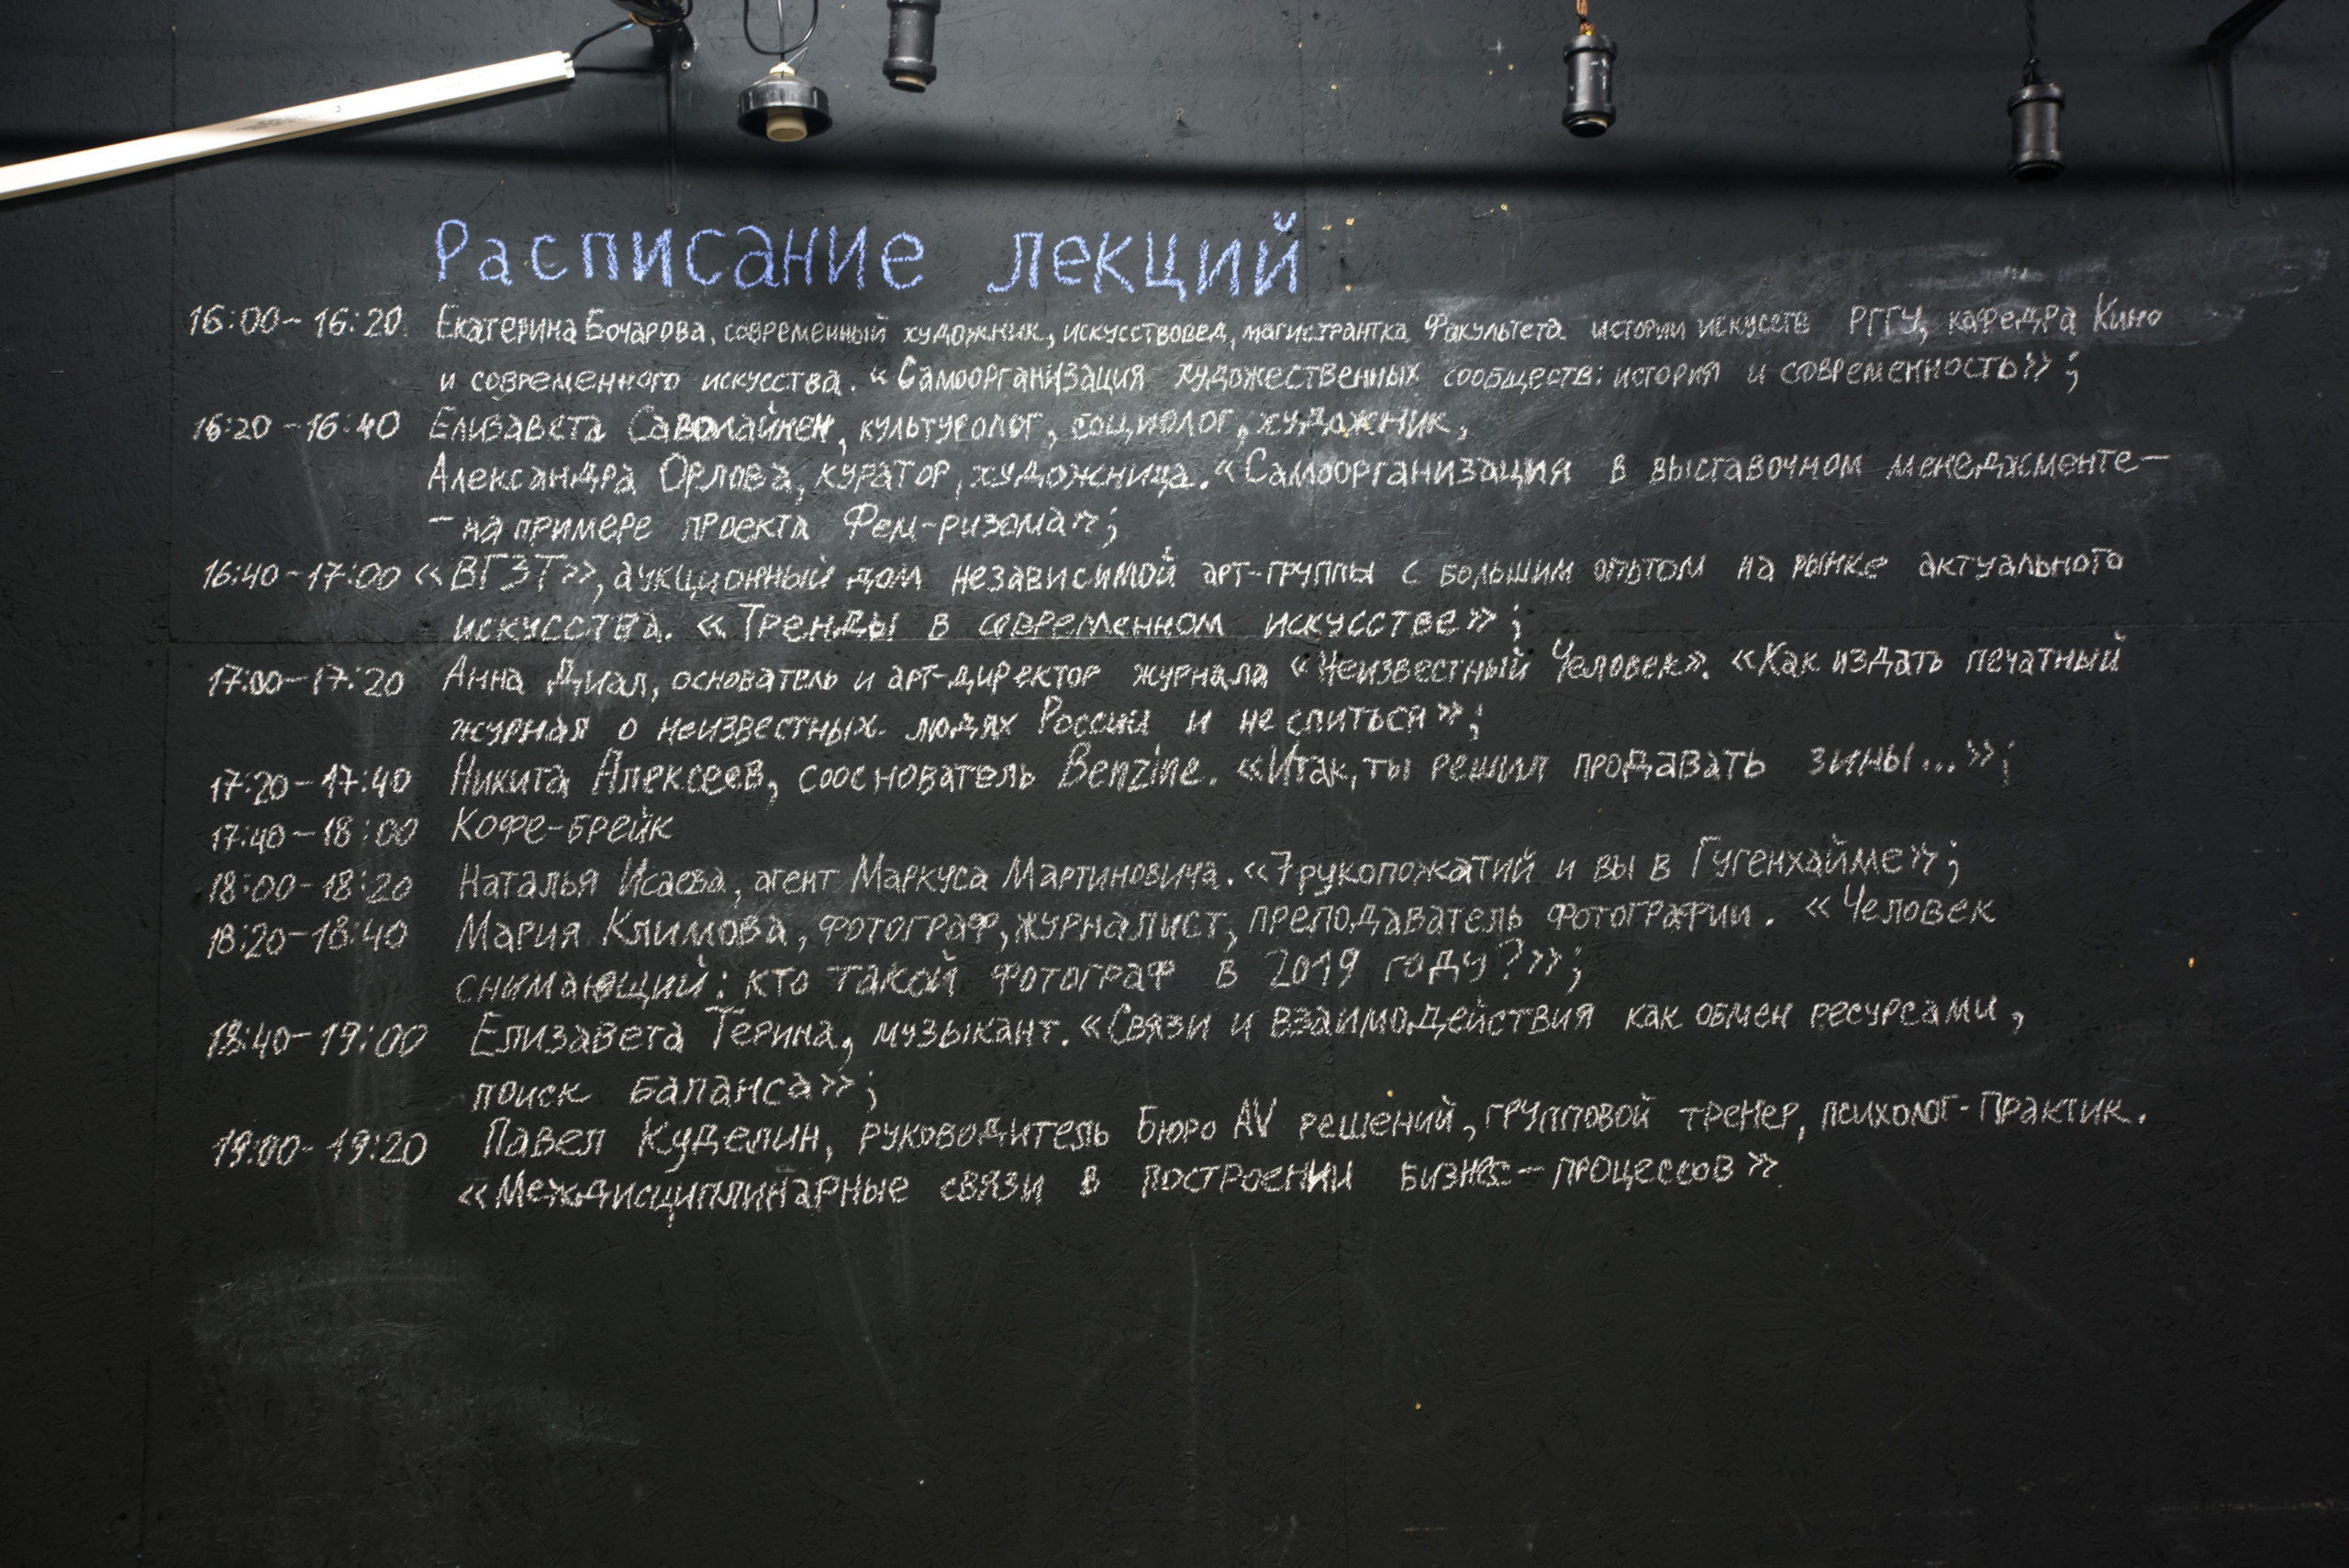 Расписание лекций
16:00-16:20. Екатерина Бочарова, современный художник, искусствовед, магистрантка Факультета истории искусств РГГУ, кафедра Кино
и современного искусства. «Самоорганизация художественных сообществ: история и современность»;
16:20-16:40 Елизавета Саволайнен, культуролог, социолог, художник,
Александра Орлова, куратор, художница. «Самоорганизация в выставочном менеджменте-
- на примере проекта Фем-ризома»;
16:40-17:00 «ВГЗТ», аукционный дом независимой арт-группы с большим опытом на рынке актуального
искусства. «Тренды в современном искусстве»;
17:00-17:20 Анна Диал, основатель и арт-директор журнала «Неизвестный Человек». «Как издать печатный
журнал о неизвестных людях России и не спиться»;
17:20-17:40 Никита Алексеев, сооснователь Benzine. «Итак, ты решил продавать зины...»;
17:40-18:00 Кофе-брейк
18:00-18:20 Наталья Исаева, агент Маркуса Мартиновича. «7 рукопожатий и вы в Гугенхайме»;
18:20-18:40 Мария Климова, фотограф, журналист, преподаватель фотографии. «Человек
снимающий: кто такой фотограф в 2019 году?»;
18:40-19:00 Елизавета Терина, музыкант. «Связи и взаимодействия как обмен ресурсами,
поиск баланса»;
19:00-19:20 Павел Куделин, руководитель Бюро AV решений, групповой тренер, психолог-практик.
«Междисциплинарные связи в построении бизнес-процессов».